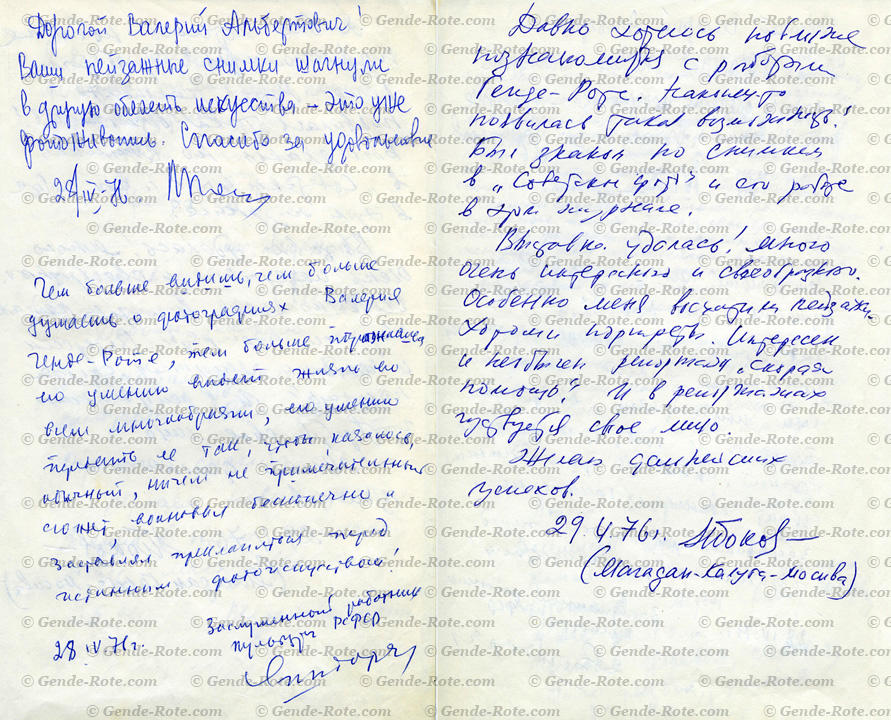 Дорогой Валерий Альбертович!
Ваши пейзажные снимки шагнули
в другую область искусства – это уже
фотоживопись. Спасибо за удовольствие
28/IV 76
Чем больше видишь, чем больше
думаешь о фотографиях Валерия
Генде-Роте, тем больше
его умению видеть жизнь во
всем многообразии, его умению
так, чтобы, казалось,
обычный, ничем не примечательный
сюжет, волновал бесконечно и
заставлял преклоняться перед
истинным фотоискусством!
Заслуженный работник
культуры РСФСР
28 IV 76г.
Давно хотелось поближе
познакомиться с работами
Генде-Роте. Наконец-то
появилась такая возможность!
Был знаком по снимкам
в "Советском фото" и его работе
в этом журнале.
Выставка удалась! Много
очень интересного и своеобразного.
Особенно меня восхитили пейзажи.
Хороши портреты. Интересен
и необычен репортаж "Скорая
помощь". И в репортажах
чувствуется свое лицо.
Желаю дальнейших
успехов.
29.4.76г.
(Магадан-Калуга-Москва)
© Gende-Rote.com